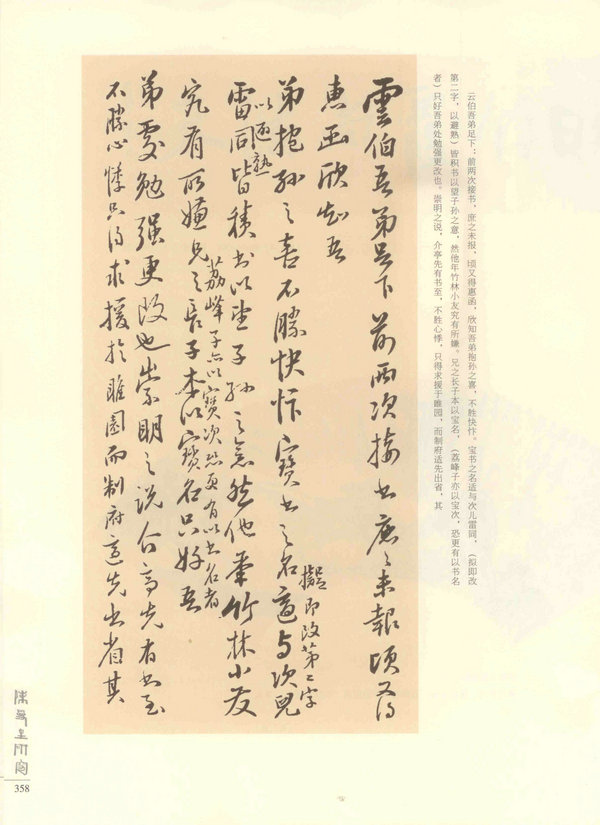 雲伯吾弟足下前兩次接書庶之未報頃又得
惠函欣知吾
弟抱孫之喜不勝快忭寶書之名適与次兒
雷同擬即改第二字
以避熟皆積書以望子孫之意然他年竹林小友
究有所嫌兄之長子本以寶名只好吾
荔峰子亦以寶次恐更有以書名者
弟處勉强更改也崇明之説介亭先有書至
不勝心悸只得求援於睢園而制府適先出省其
云伯吾弟足下：前两次接书，庶之未报，顷又得惠函，欣知吾弟抱孙之喜，不胜快忭。宝书之名适与次儿雷同，（拟即改
第二字，以避熟）皆积书以望子孙之意，然他年竹林小友究有所嫌。兄之长子本以宝名，（荔峰子亦以宝次，恐更有以书名
者）只好吾弟处勉强更改也。崇明之说，介亭先有书至，不胜心悸，只得求援于睢园，而制府适先出省，其
358